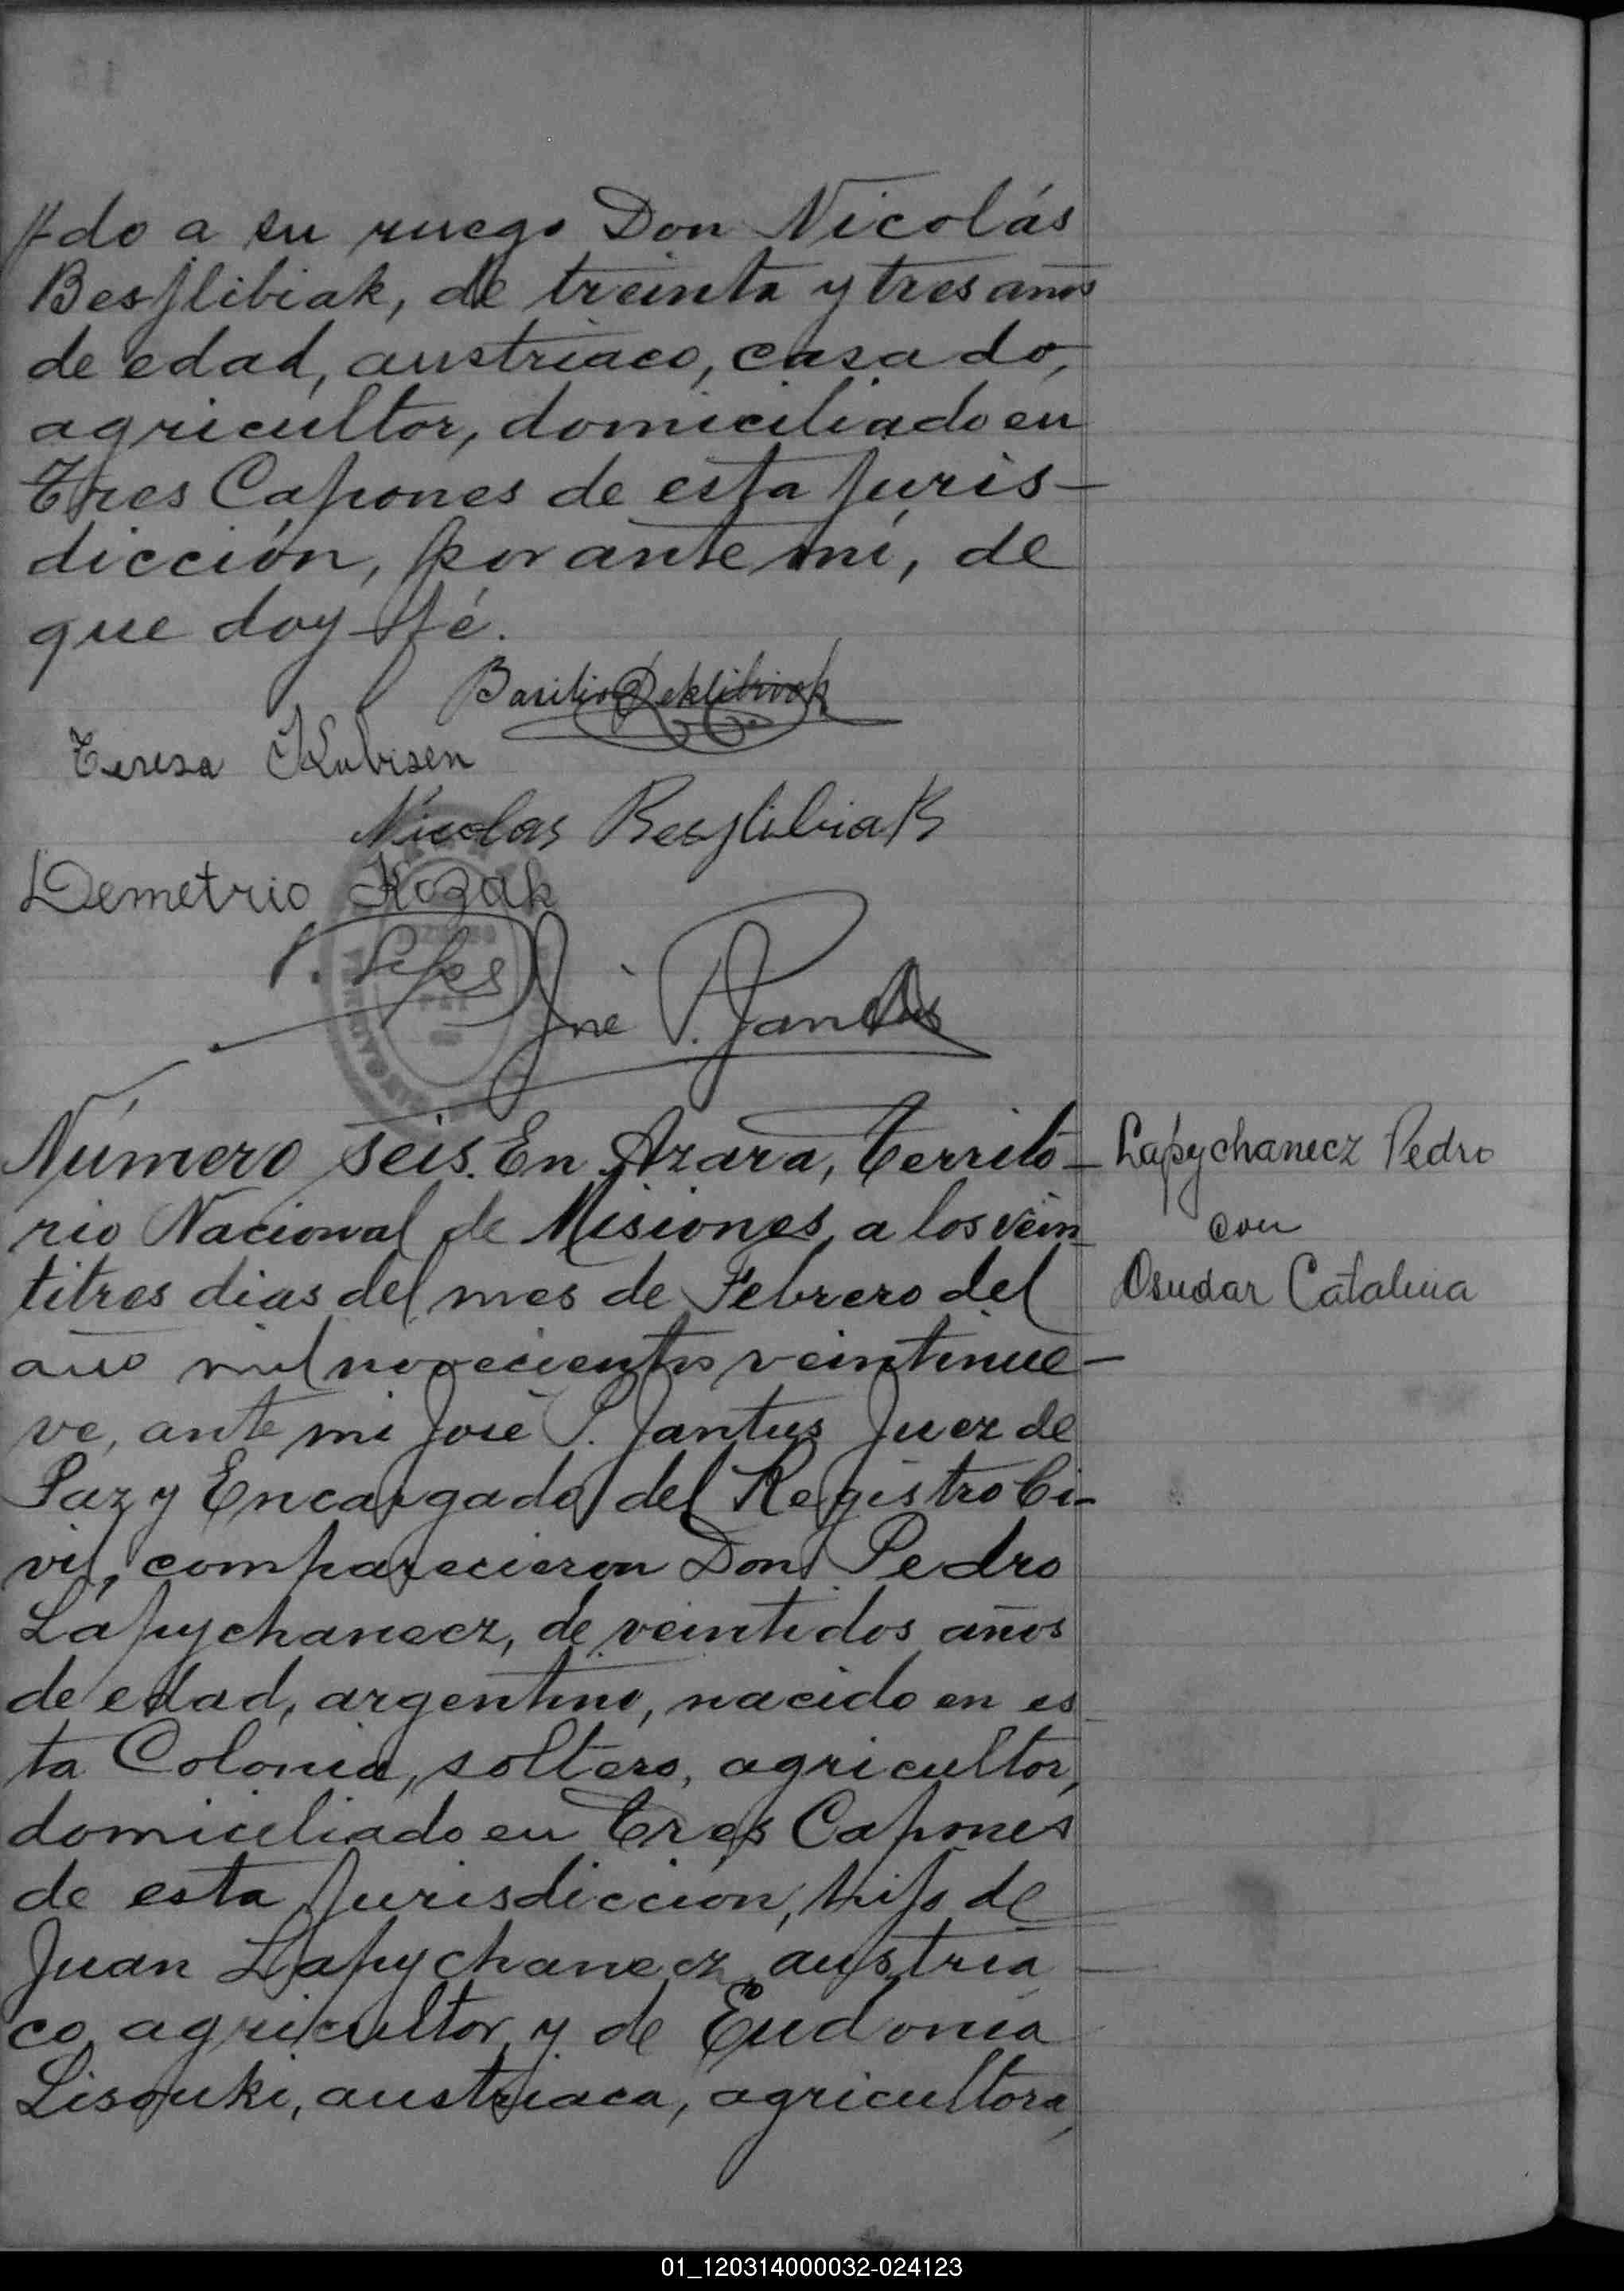 do a su ruego Don Nicolás
Besflibiak, de treinta y tres años
de edad, austriaco, casado,
agricultor, domiciliado en
Tres Capones de esta Juris-
dicción, por ante mí, de
que doy fé.
Basilio
Teresa Kubisen
Nicolas Besflibiak
Demetrio Kozak
José P. Jantus
Número seis. En Azara, Territo-
rio Nacional de Misiones, a los vein
titres dias del mes de Febrero del
año mil novecientos veintinue-
ve, ante mi José P. Jantus Juez de
Paz y Encargado del Registro Ci-
vil, comparecieron Don Pedro
Lapychanecz, de veintidos años
de edad, argentino, nacido en es
ta Colonia, soltero, agricultor,
domiciliado en Tres Capones
de esta Jurisdicción, hijo de
Juan Lapychanecz, austria
co, agricultor y de Eudonia
Lisouki, austriaca, agricultora,
Lapychanecz Pedro
con
Osudar Catalina
01_120314000032-024123